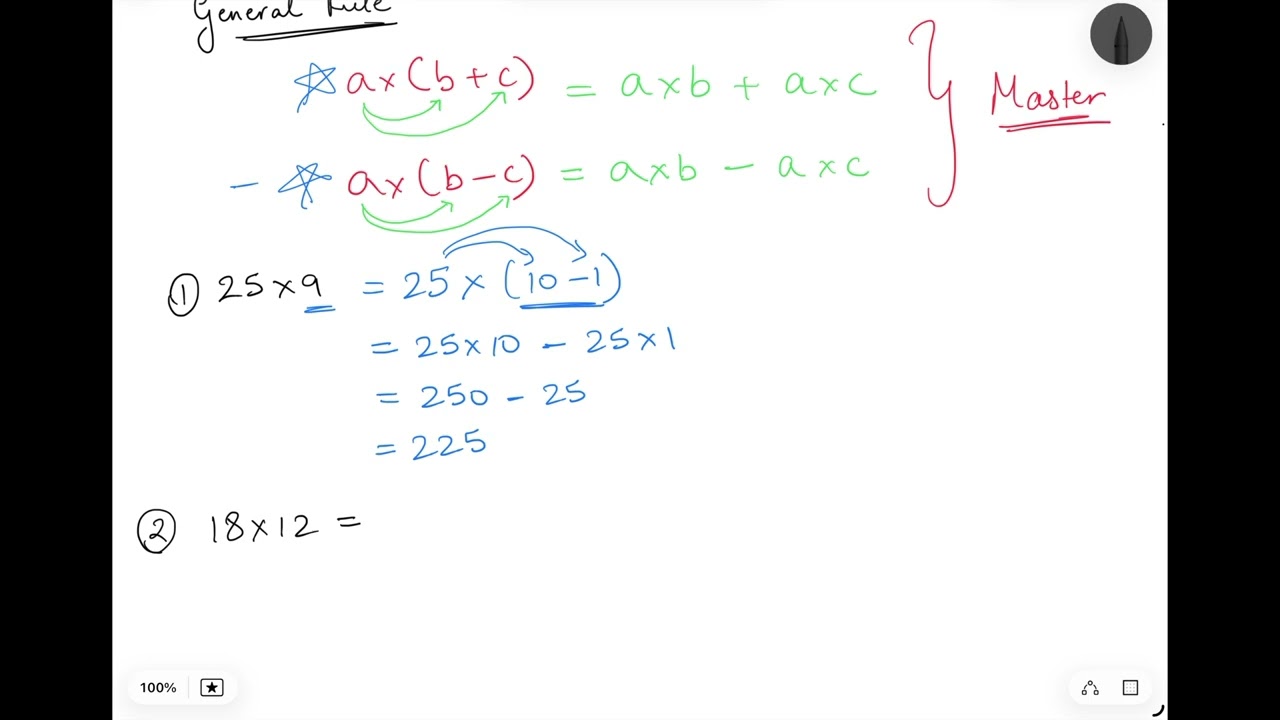 General Rule
☆ a×(b+c) = a×b + a×c
Master
- ☆ a×(b-c) = a×b - a×c
① 25×9 = 25×(10-1)
= 25×10 - 25×1
= 250 - 25
= 225
② 18×12 =
100%